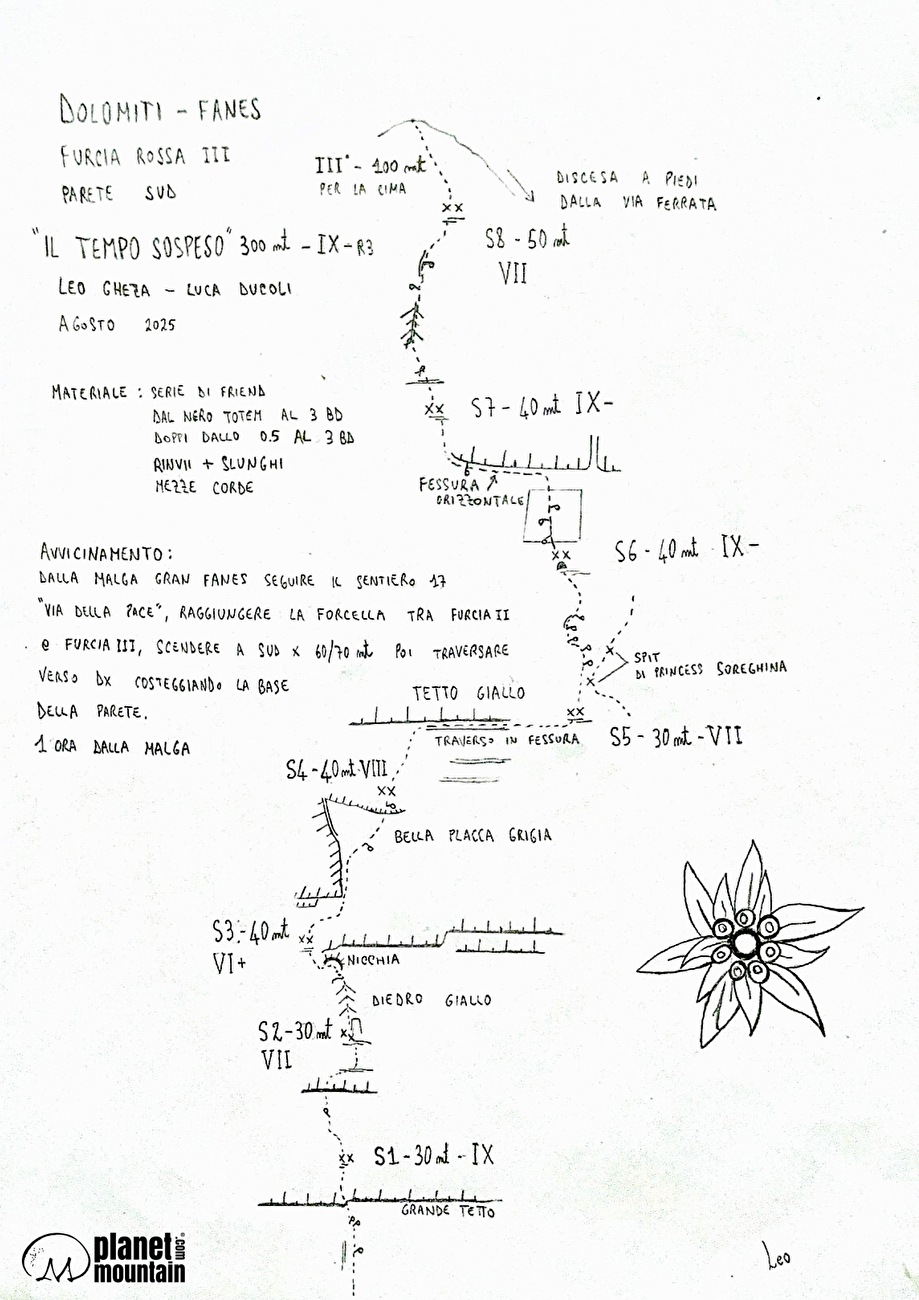 DOLOMITI - FANES
FURCIA ROSSA III
PARETE SUD
"IL TEMPO SOSPESO" 300 mt - IX - R3
LEO GHEZA - LUCA DUCOLI
AGOSTO 2025
III° - 100 mt
PER LA CIMA
DISCESA A PIEDI
DALLA VIA FERRATA
S8 - 50 mt
VII
MATERIALE : SERIE DI FRIEND
DAL NERO TOTEM AL 3 BD
DOPPI DALLO 0.5 AL 3 BD
RINVII + SLUNGHI
MEZZE CORDE
S7 - 40 mt IX-
FESSURA
ORIZZONTALE
S6 - 40 mt IX-
AVVICINAMENTO:
DALLA MALGA GRAN FANES SEGUIRE IL SENTIERO 17
"VIA DELLA PACE", RAGGIUNGERE LA FORCELLA TRA FURCIA II
e FURCIA III, SCENDERE A SUD x 60/70 mt POI TRAVERSARE
VERSO DX COSTEGGIANDO LA BASE
DELLA PARETE.
1 ORA DALLA MALGA
SPIT
DI PRINCESS SOREGHINA
TETTO GIALLO
TRAVERSO IN FESSURA
S5 - 30 mt - VII
S4 - 40 mt VIII
BELLA PLACCA GRIGIA
S3 - 40 mt
VI+
NICCHIA
DIEDRO GIALLO
S2 - 30 mt
VII
S1 - 30 mt - IX
GRANDE TETTO
planet
mountain
.com
Leo